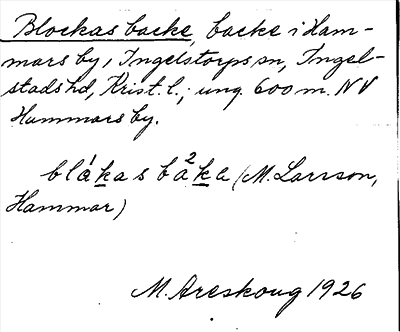 Blockas backe, backe i Ham-
mars by, Ingelstorps sn, Ingel-
stads hd, Krist. l.; ung. 600 m. NV
Hammars by.
blákas bà²ke (M. Larsson,
Hammar)
M. Areskoug 1926